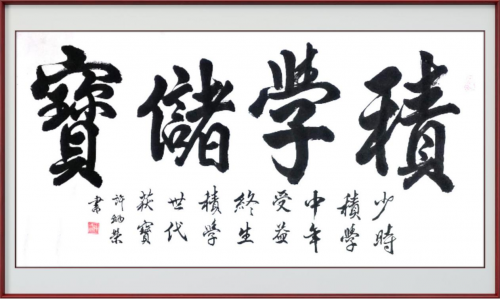 積学儲寶
少時
積學
中年
受益
終生
積學
世代
获寶
許炳榮
書